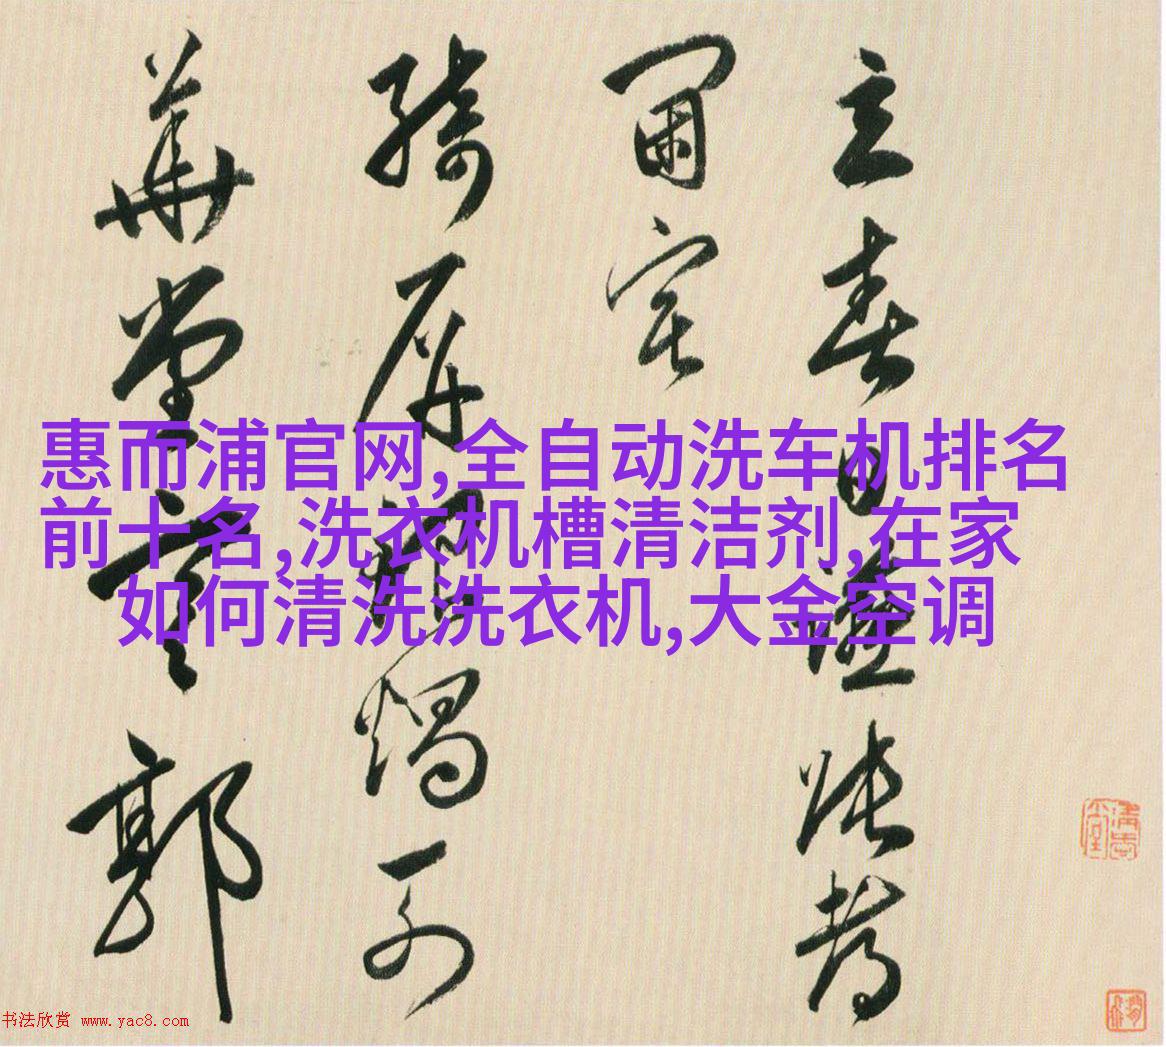 立春日讌
宅
綺屏燭
華堂重郭
惠而浦官网,全自动洗车机排名
前十名,洗衣机槽清洁剂,在家
如何清洗洗衣机,大金空调
书法欣赏 www.yac8.com